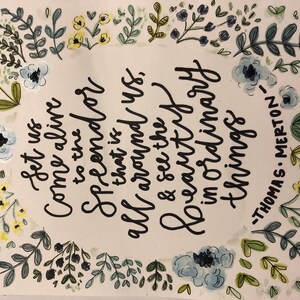 Let us
Come alive
to the
Splendor
that is
all around us,
& see the
beauty
in ordinary
things
-THOMAS MERTON-